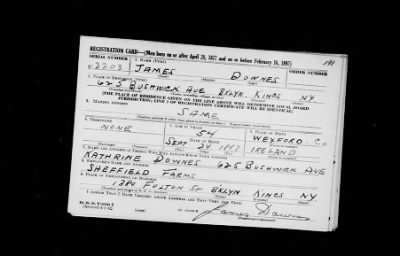 REGISTRATION CARD—(Men born on or after April 28, 1877 and on or before February 16, 1897)
SERIAL NUMBER 1. NAME (Print) ORDER NUMBER
U2203 JAMES DOWNES
2. PLACE OF RESIDENCE (Print)
625 BUSHWICK AVE BKLYN KINGS NY
[THE PLACE OF RESIDENCE GIVEN ON THE LINE ABOVE WILL DETERMINE LOCAL BOARD
JURISDICTION; LINE 2 OF REGISTRATION CERTIFICATE WILL BE IDENTICAL]
3. MAILING ADDRESS
SAME
4. TELEPHONE 5. AGE IN YEARS 6. PLACE OF BIRTH
NONE 54 WEXFORD CO
DATE OF BIRTH
SEPT 24 IRELAND
7. NAME AND ADDRESS OF PERSON WHO WILL ALWAYS KNOW YOUR ADDRESS
KATHRINE DOWNES 625 BUSHWICK AVE
8. EMPLOYER'S NAME AND ADDRESS
SHEFFIELD FARMS
9. PLACE OF EMPLOYMENT OR BUSINESS
FULTON ST BKLYN KINGS NY
I AFFIRM THAT I HAVE VERIFIED ABOVE ANSWERS AND THAT THEY ARE TRUE.
D. S. S. Form 1
James Downes